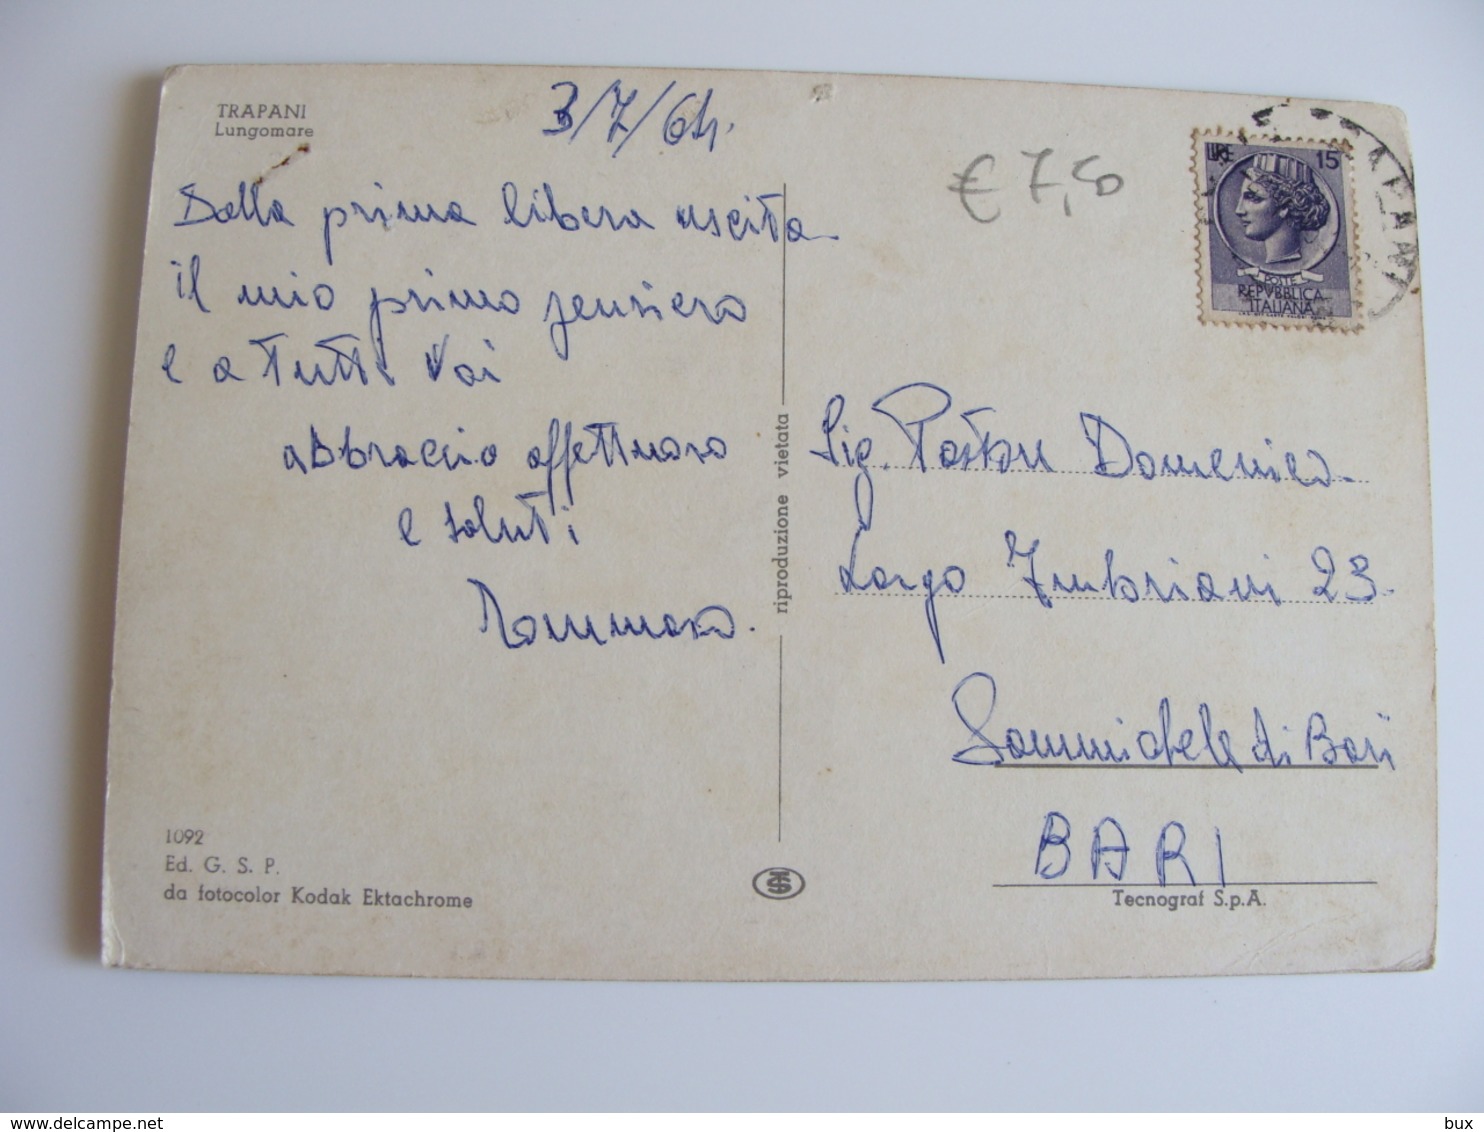 TRAPANI
Lungomare
3/7/64.
Dalla prima libera uscita
il mio primo pensiero
e a tutti voi
abbraccio affettuoso
e saluti
Tommaso.
1092
Ed. G. S. P.
da fotocolor Kodak Ektachrome
riproduzione vietata
€ 7,50
LIRE 15
POSTE
REPVBBLICA
ITALIANA
Sig. Pastore Domenico
Largo Imbriani 23
Sammichele di Bari
BARI
Tecnograf S.p.A.
delcampe.net
bux